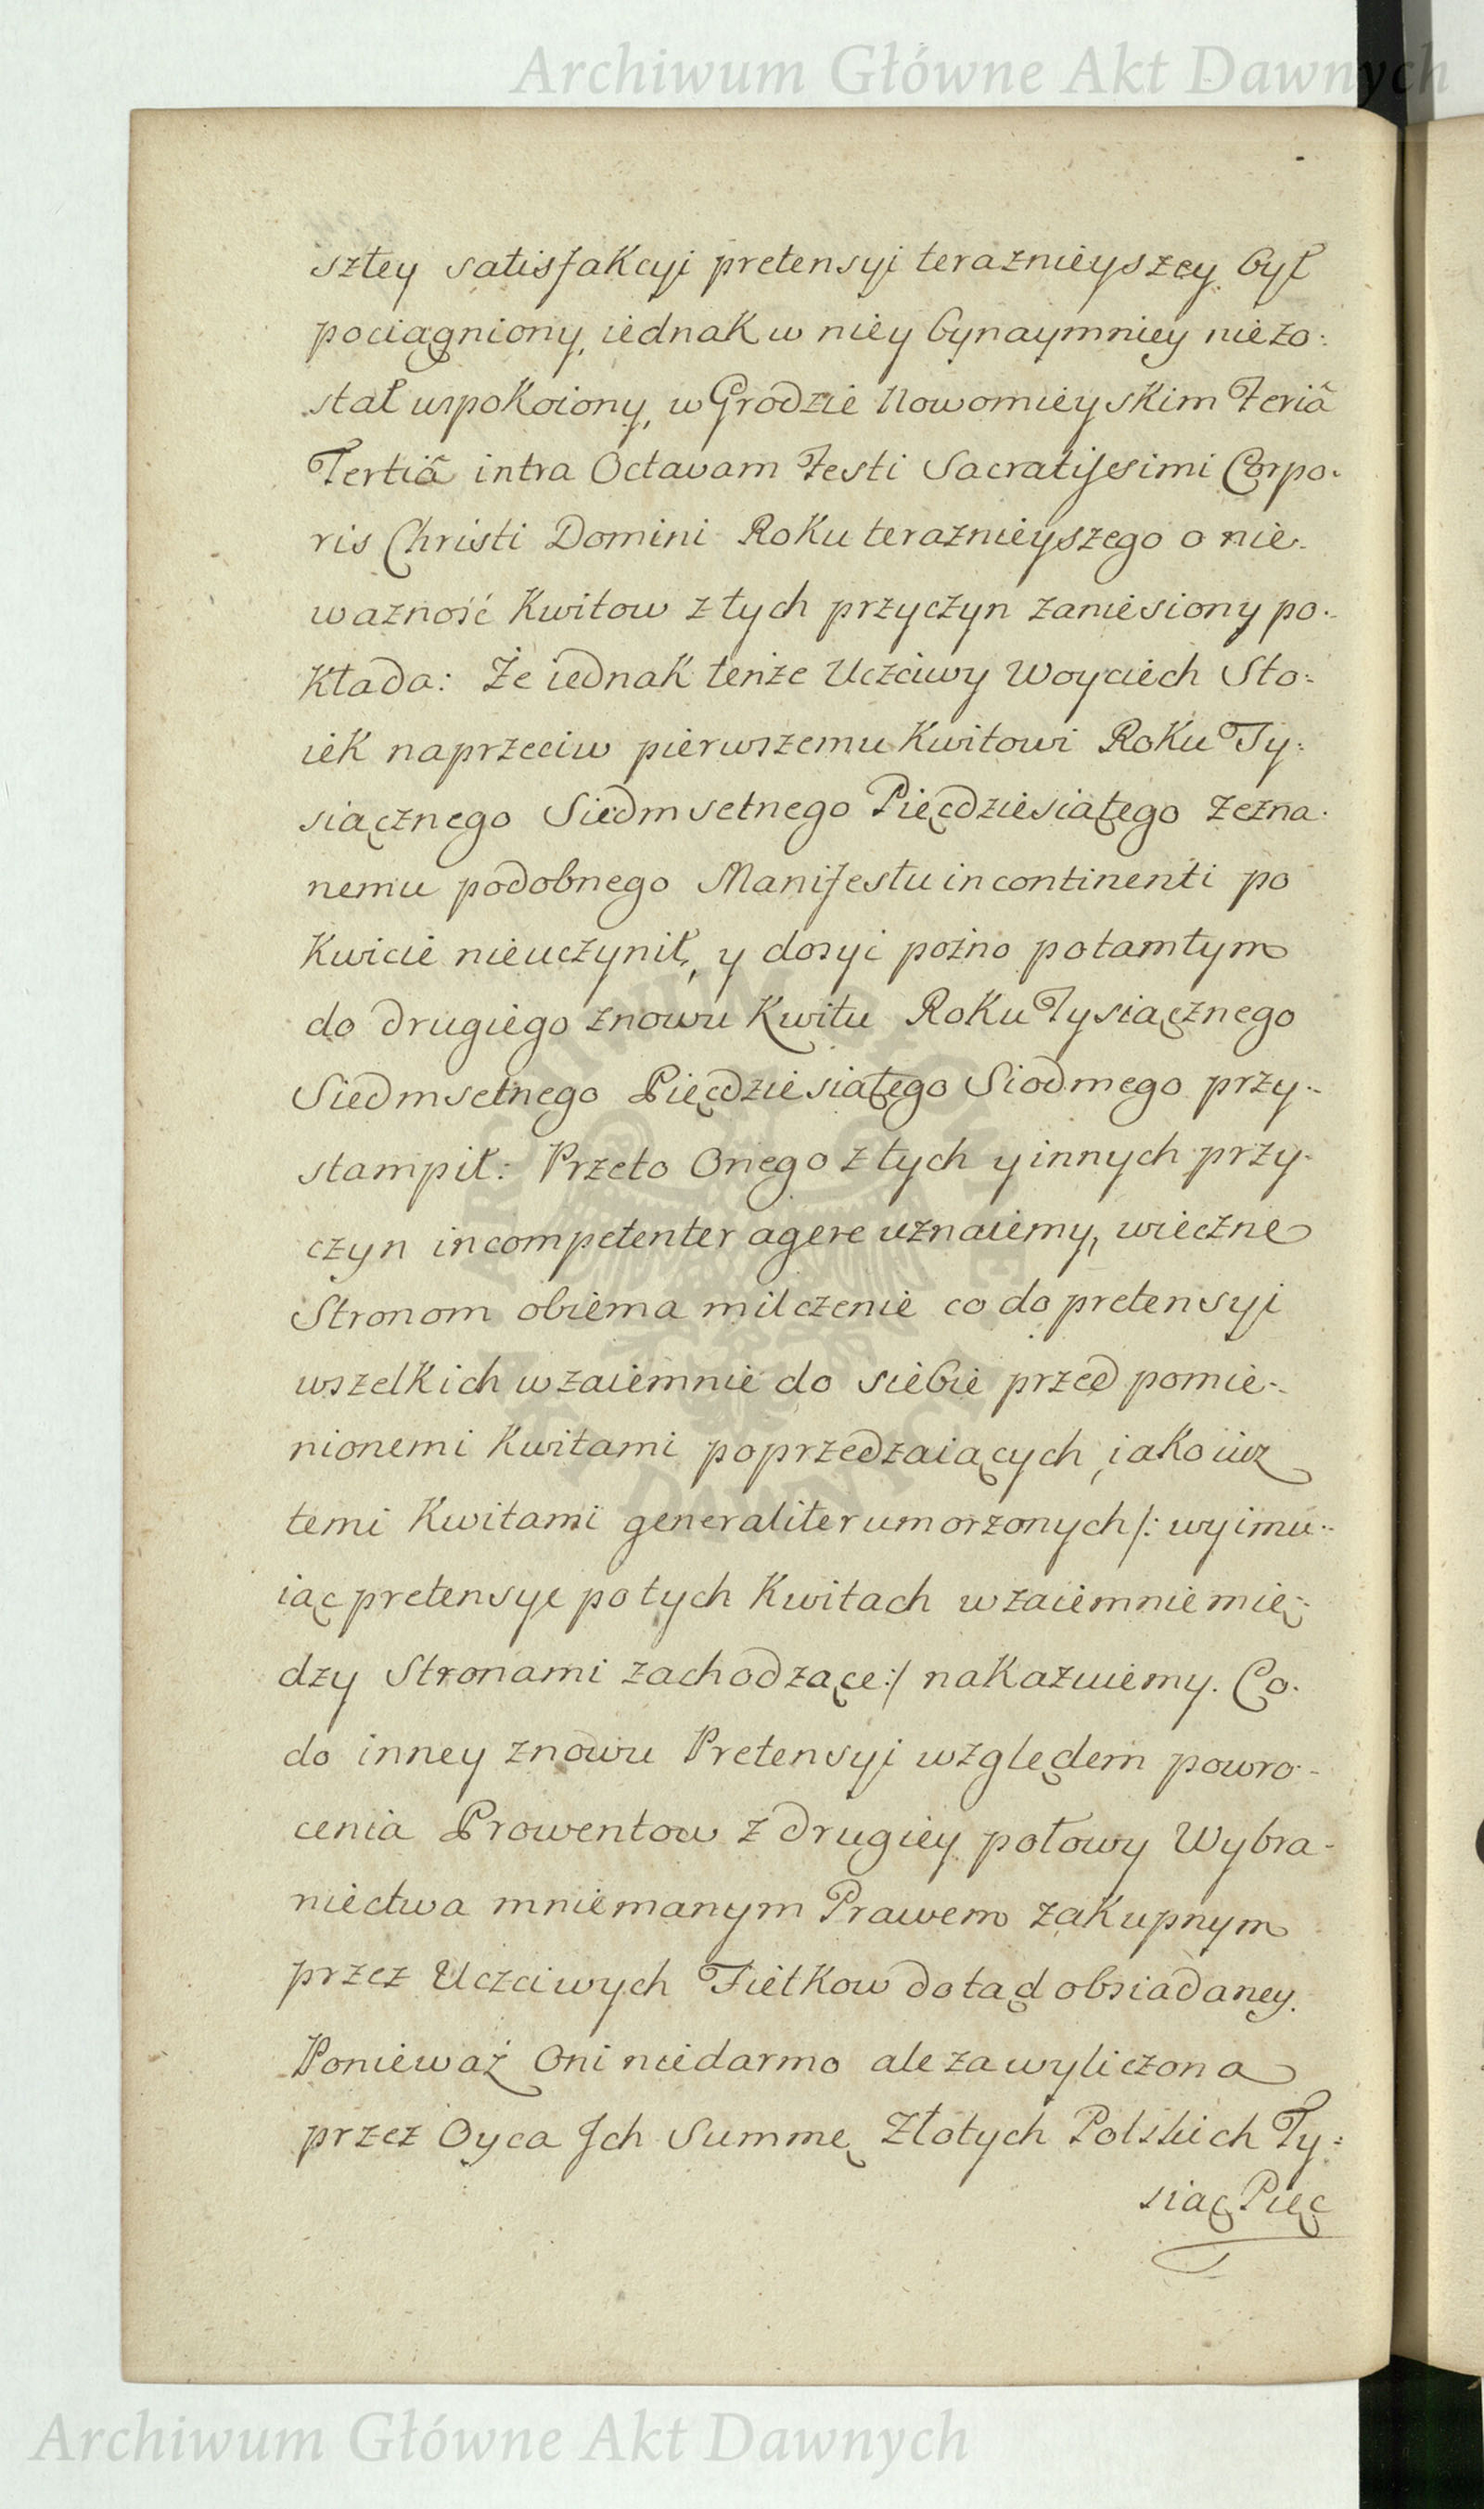 Archiwum Główne Akt Dawnych
szłey satisfakcyi pretensyi teraznieyszey był
pociągniony, iednak w niey bynaymniey niezo:
stał uspokoiony, w Grodzie Nowomieyskim Feriâ
Tertiâ intra Octavam Festi Sacratissimi Corpo:
ris Christi Domini Roku teraznieyszego o nie:
wazność Kwitow z tych przyczyn zaniesiony po:
kłada: Że iednak tenże Uczciwy Woyciech Sto:
iek naprzeciw pierwszemu Kwitowi Roku Ty:
siącznego Siedmsetnego Pięcdziesiątego zezna:
nemu podobnego Manifestu in continenti po
Kwicie nieuczynił, y dosyi pożno potamtym
do drugiego znowu Kwitu Roku Tysiącznego
Siedmsetnego Pięcdziesiątego Siodmego przy:
stampił: Przeto Onego z tych y innych przy:
czyn incompetenter agere uznaiemy, wieczne
Stronom obiema milczenie co do pretensyi
wszelkich wzaiemnie do siebie przed pomie:
nionemi Kwitami poprzedzaiących, iako iuż
temi Kwitami generaliter umorzonych /: wyimu:
iąc pretensye po tych Kwitach wzaiemnie mię:
dzy Stronami zachodzące :/ nakazuiemy. Co:
do inney znowu Pretensyi względem powro:
cenia Prowentow z drugiey połowy Wybra:
niectwa mniemanym Prawem zakupnym
przez Uczciwych Fietkow dotąd obsiadaney.
Ponieważ Oni niedarmo ale za wyliczona
przez Oyca Jch Summę Złotych Polskich Ty:
siąc Pięc
ARCHIWUM GŁÓWNE AKT DAWNYCH
Archiwum Główne Akt Dawnych